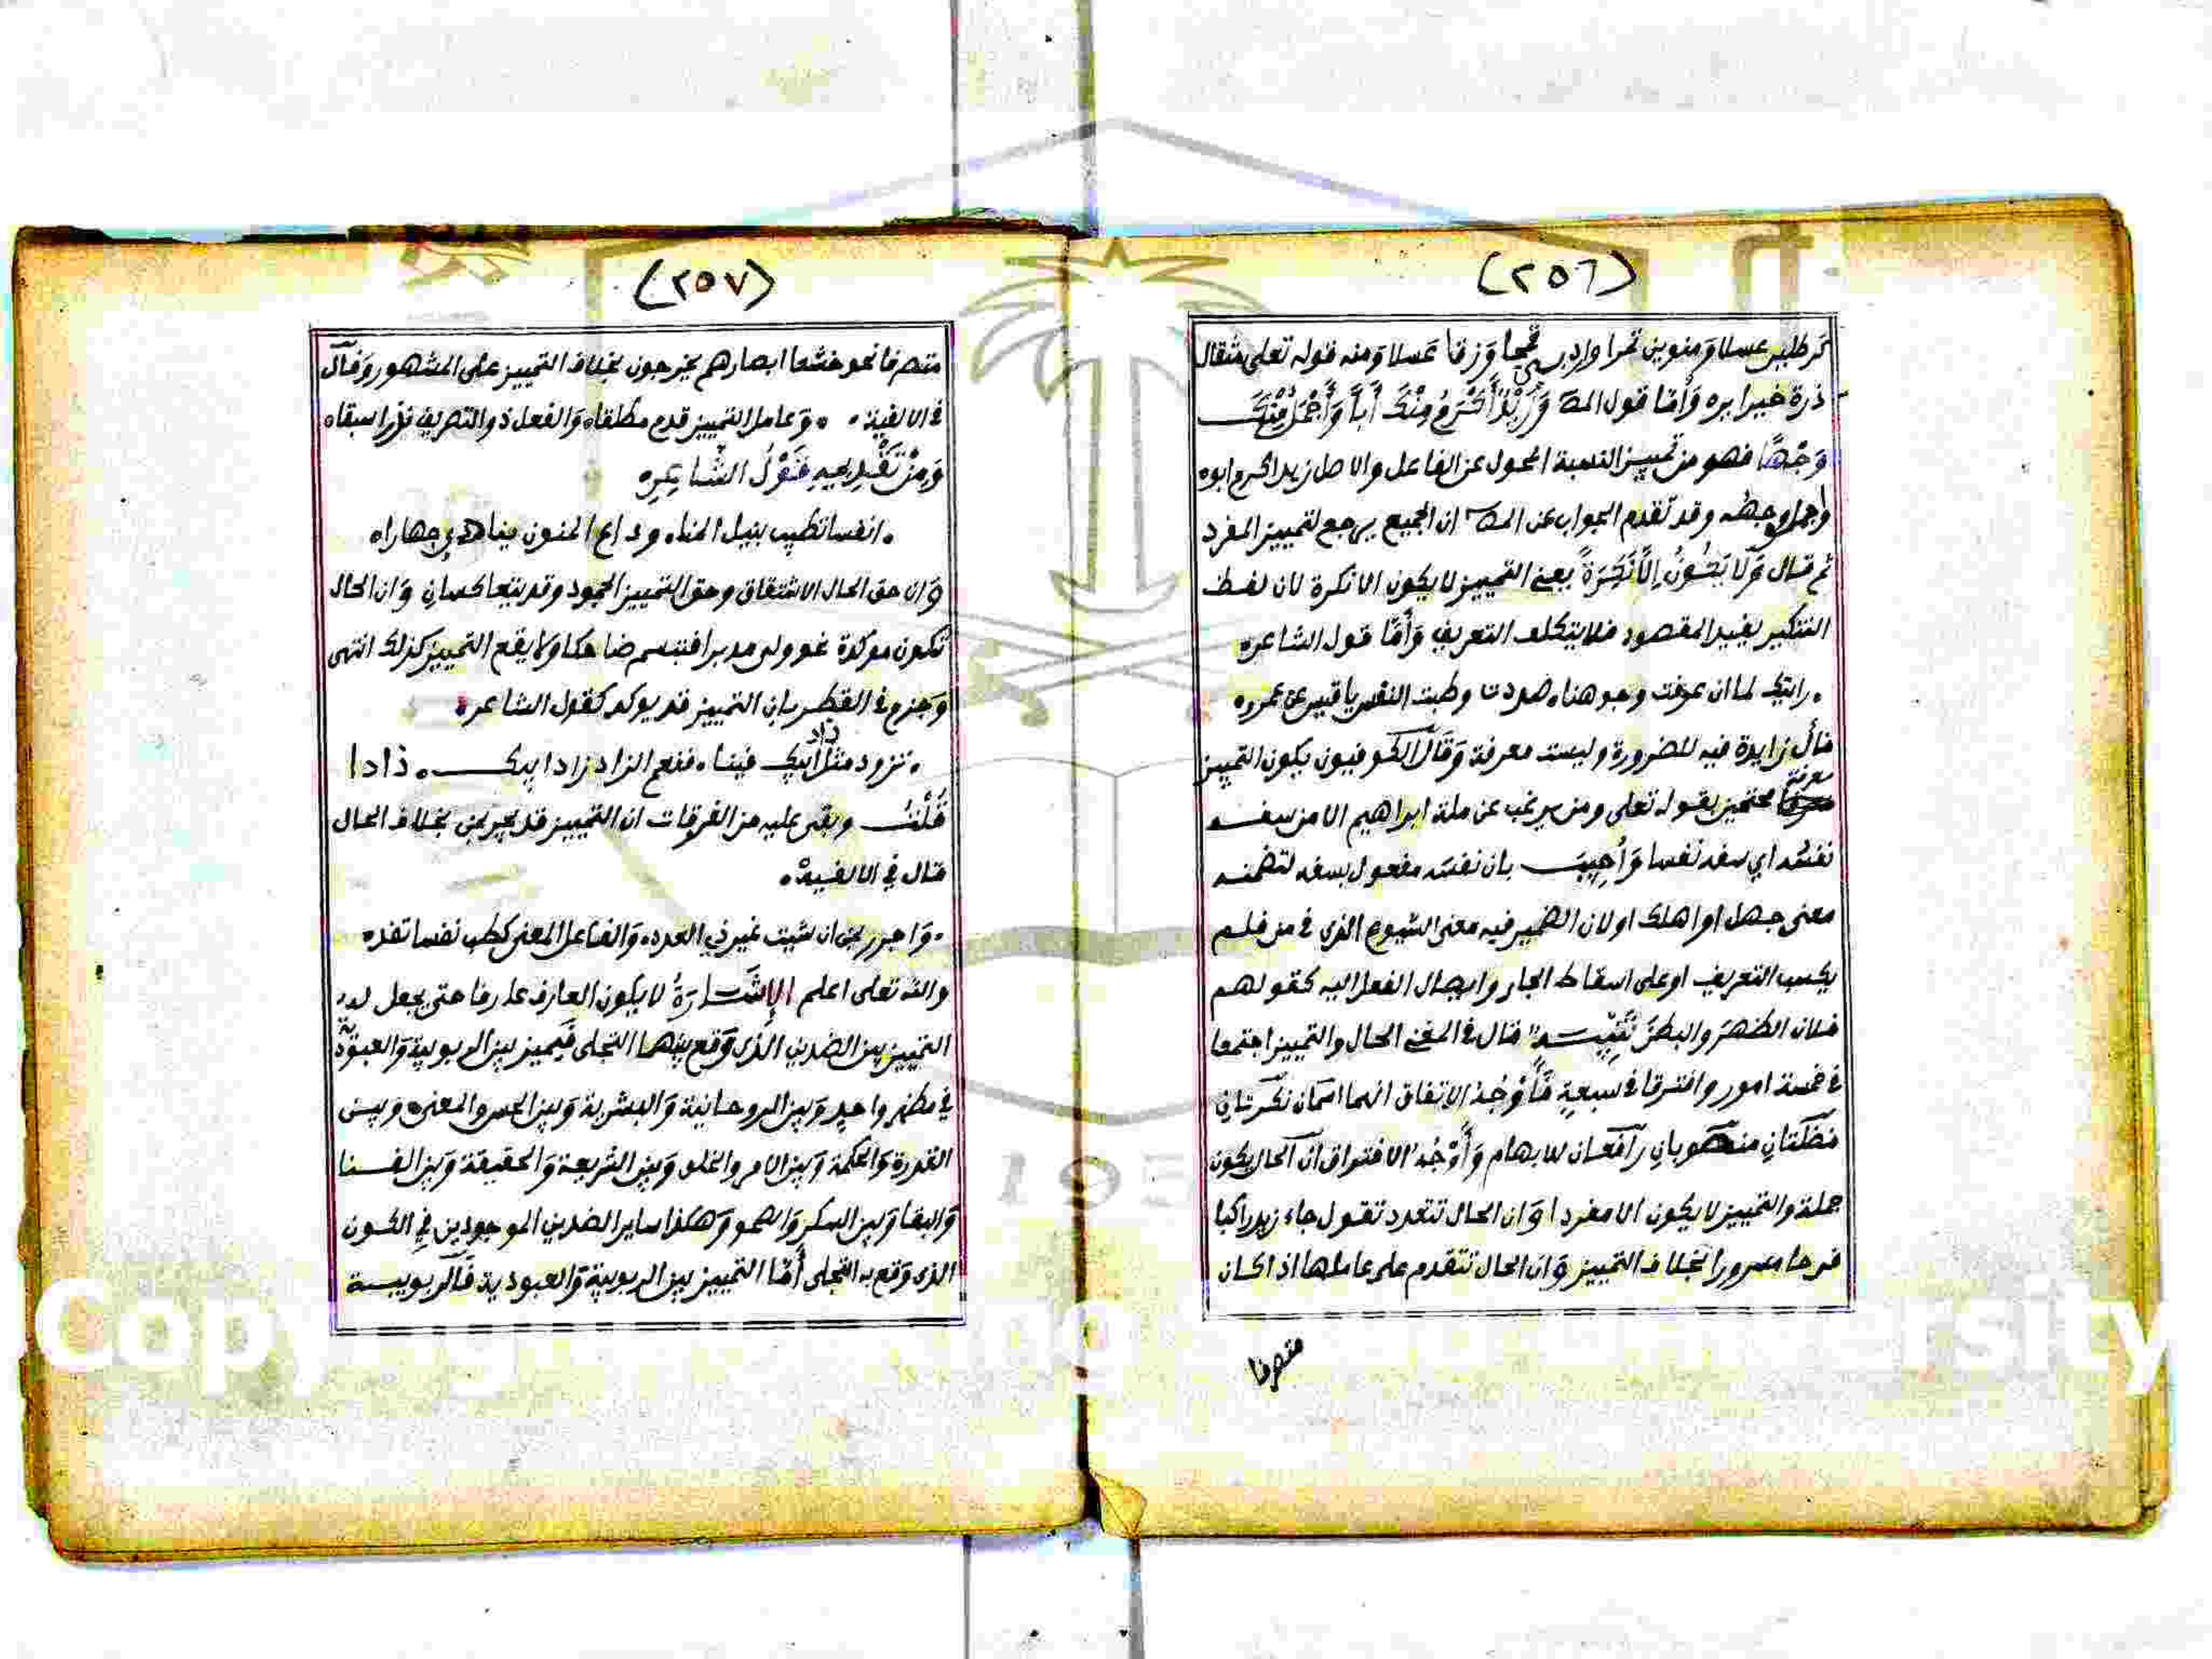 (٢٥٦)
كرطلين عسلا ومنوين تمرا واردب قمحا وزقا عسلا ومنه قوله تعلى مثقال
ذرة خيرا يره وَأمّا قول المص وَزَيْدٌ أَكْرَمُ مِنْكَ أَباً وَأَجْمَلُ مِنْكَ
وَجْهًا فهو من تمييز النسبة المحول عن الفاعل والاصل زيد اكرم ابوه
واجمل وجهه وقد تقدم الجواب عن المص ان الجميع يرجع لتمييز المفرد
ثم قال وَلَا يَكُونُ إِلَّا نَكِرَةً يعني التمييز لا يكون الا نكرة لان لفظ
التنكير يفيد المقصود فلا يتكلف التعريف وَأَمّا قول الشاعر
رايتك لما ان عرفت وجوهنا صددت وطبت النفس يا قيس عن عمرو
فأل زايدة فيه للضرورة وليست معرفة وَقَالَ الكوفيون يكون التمييز
معرفة محتجين بقوله تعلى ومن يرغب عن ملة ابراهيم الا من سفه
نفسَه اي سفه نفسا وَأُجِيبَ بان نفسَه مفعول بسفه لتضمنه
معنى جهل او اهلك او لان الضمير فيه معنى الشيوع الذى في من فلم
يكسب التعريف او على اسقاط الجار وايصال الفعل اليه كقولهم
فلان الظهرَ والبطنَ تَنْبِيـه قال في المغني الحال والتمييز اجتمعا
في خمسة امور وافترقا في سبعةٍ فَأَوْجُهُ الاتفاق انهما اسمان نكرتانِ
فضلتانِ منصوبانِ رافعان للابهام وَأَوْجُهُ الافتراق ان الحال يكون
جملة والتمييز لا يكون الا مفردا وَان الحال تتعدد تقول جاء زيد راكبا
فرحا مسرورا بخلاف التمييز وَان الحال تتقدم على عاملها اذا كان
متصرفا
(٢٥٧)
متصرفا نحو خشعا ابصارهم يخرجون بخلاف التمييز على المشهور وَقال
في الالفية وَعامل التمييز قدم مطلقا وَالفعل ذو التصريف نزرا سبقا
وَمِنْ تَقْدِيمِهِ قَوْلُ الشَّاعِرِ
انفسا تطيب بنيل المنا وداع المنون ينادي جهارا
وَان حق الحال الاشتقاق وحق التمييز الجمود وقد يتعاكسانِ وَان الحال
تكون موكدة نحو ولى مدبرا فتبسم ضاحكا وَلا يقع التمييز كذلك انتهى
وَجزم في القطر بان التمييز قد يوكد كقول الشاعر
تزود مثل زاد ابيك فينا فنعم الزاد زاد ابيك زادا
قُلْتُ وبقى عليه من الفرقات ان التمييز قد يجر بمن بخلاف الحال
قال في الالفية
وَاجرر بمن ان شيت غير ذي العدد وَالفاعل المعنى كطب نفسا تفد
والله تعلى اعلم الإِشَـارَةُ لا يكون العارف عارفا حتى يجعل له
التمييز بين الضدين الذى وَقع بينهما التجلى فيميز بين الربوبية وَالعبودية
في مظهر واحدٍ وَبين الروحانية وَالبشرية وَبين الحس والمعنى وبين
القدرة وَالحكمة وَبين الامر والخلق وَبين الشريعة وَالحقيقة وَبين الفـنا
وَالبقا وَبين السكر وَالصحو وَهكذا ساير الضدين الموجودين في الكون
الذى وَقع به التجلى أَمّا التمييز بين الربوبية وَالعبودية فَالربوبيـة